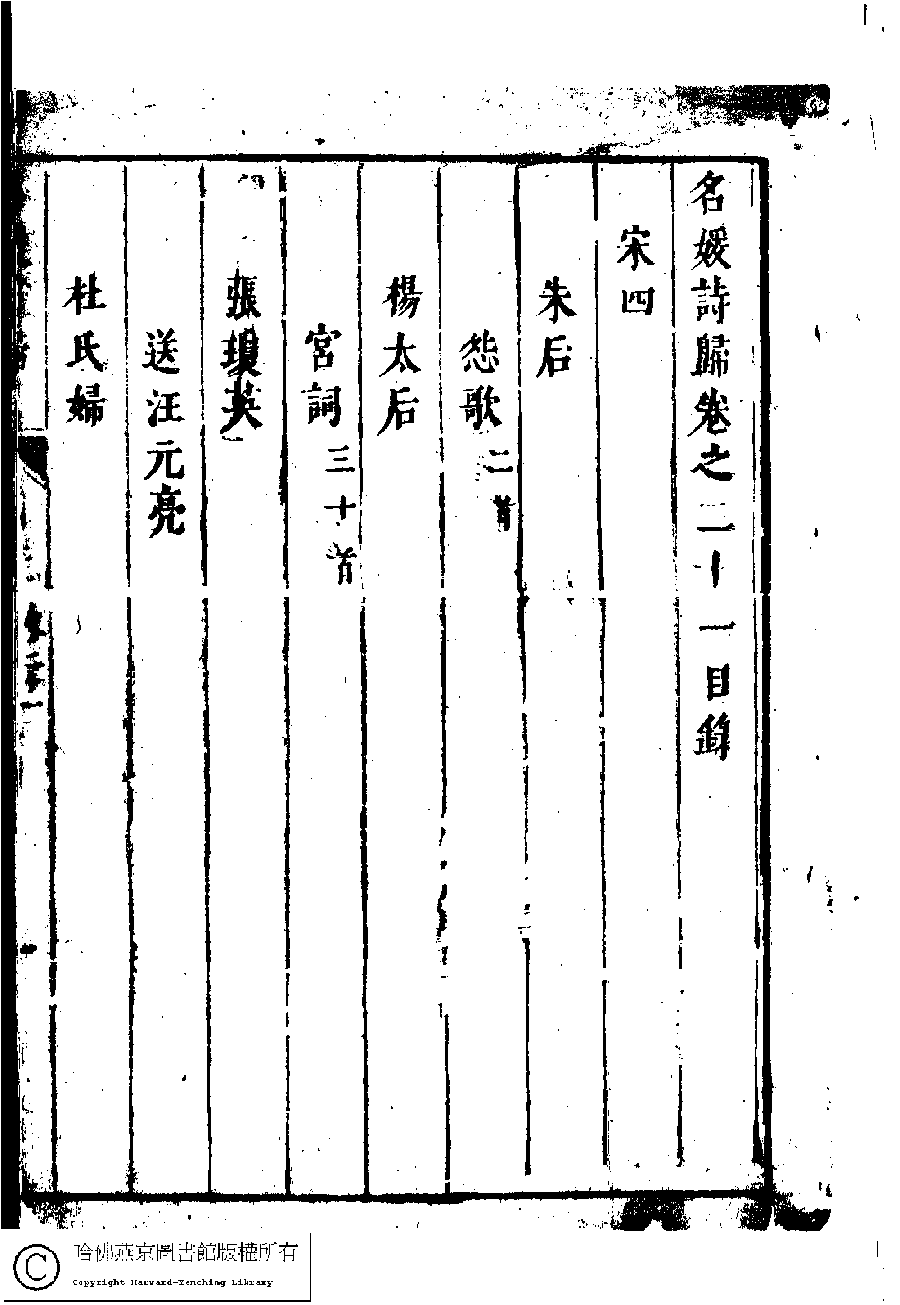 名媛詩歸卷之二十一目錄
宋四
朱后
怨歌二首
楊太后
宮詞三十首
張瓊英
送汪元亮
杜氏婦
哈佛燕京圖書館版權所有
Copyright Harvard-Yenching Library